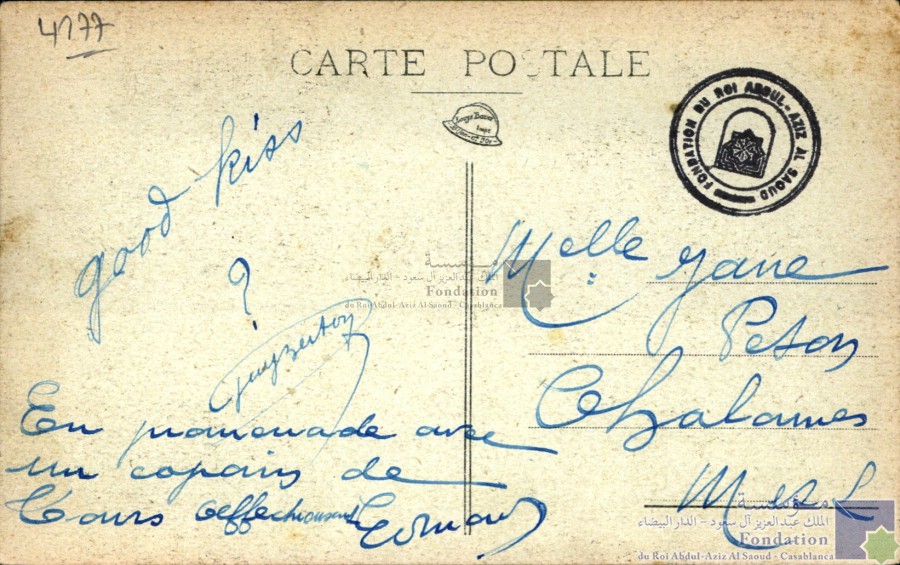 4177
CARTE POSTALE
FONDATION DU ROI ABDUL-AZIZ AL SAOUD
good kiss
?
Melle Jane
Peton
Chalonnes
M et L
En promenade avec
un copain de
Tours affectionnement
مؤسسة
الملك عبد العزيز آل سعود - الدار البيضاء
Fondation
du Roi Abdul-Aziz Al Saoud - Casablanca
مؤسسة
الملك عبد العزيز آل سعود - الدار البيضاء
Fondation
du Roi Abdul-Aziz Al Saoud - Casablanca